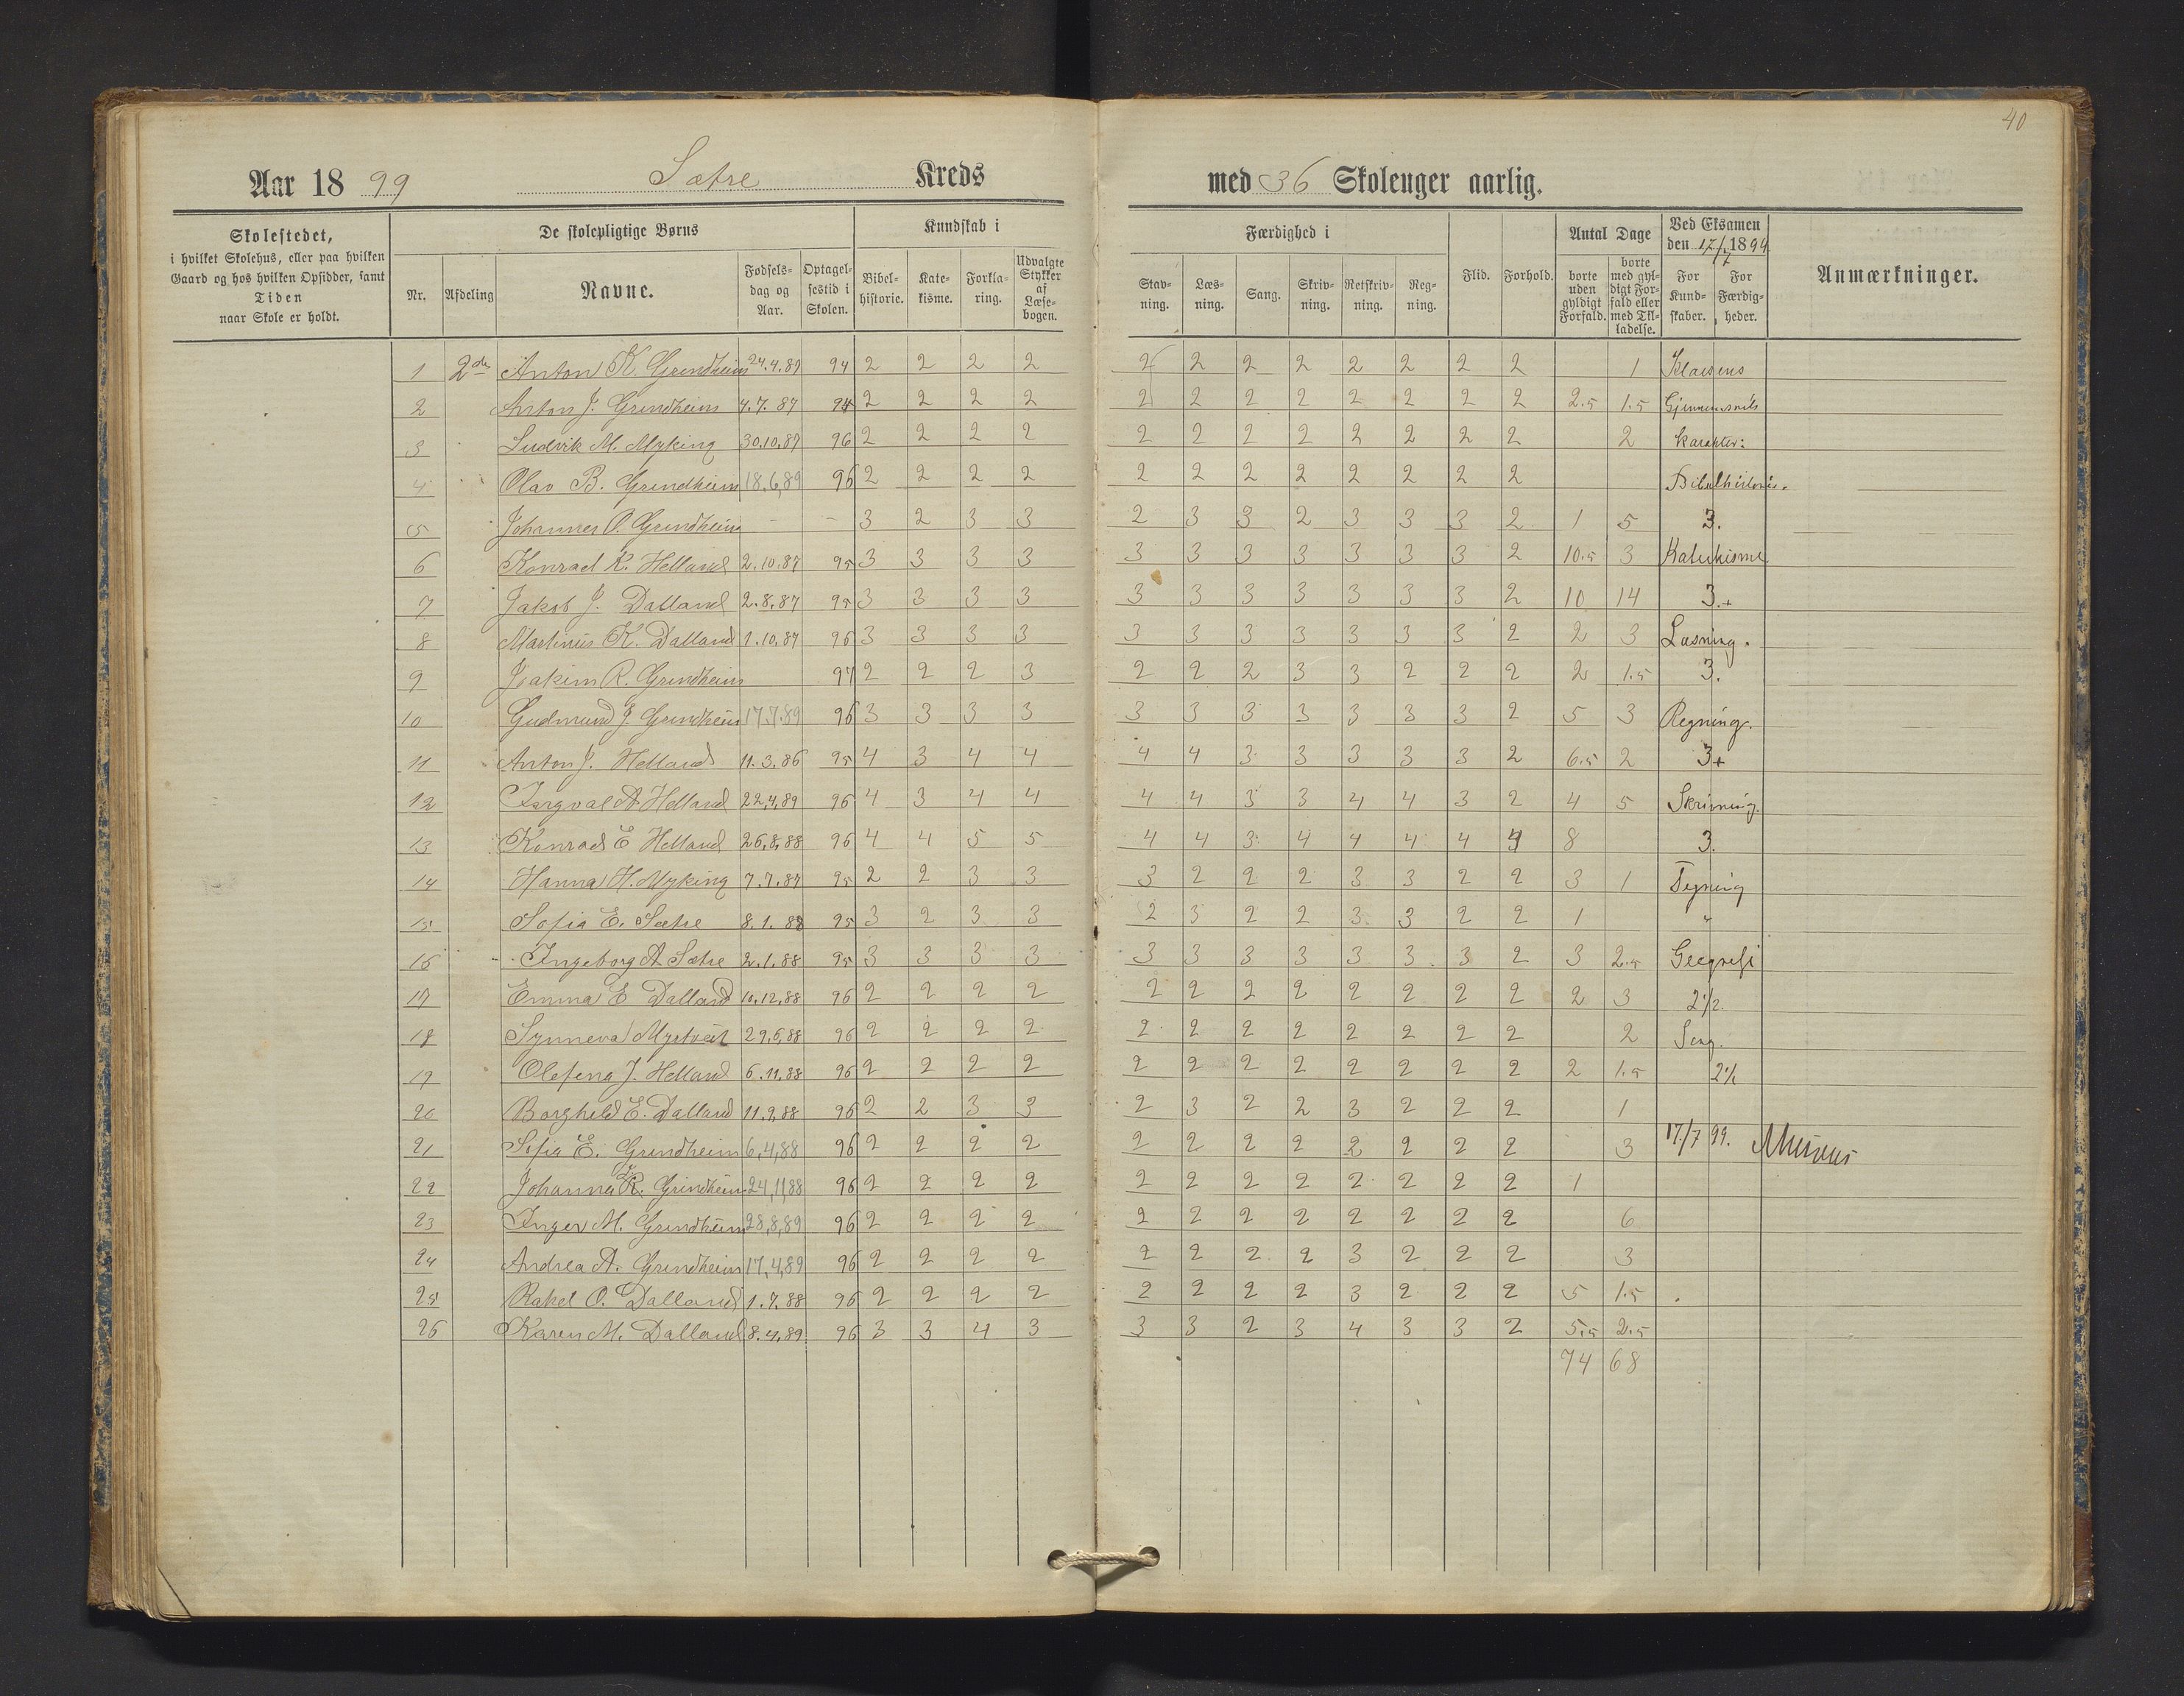 40
Aar 1899 Sætre Kreds med 36 Skoleuger aarlig.
Skolestedet, i hvilket Skolehus, eller paa hvilken Gaard og hos hvilken Opsidder, samt Tiden naar Skole er holdt.
De skolepligtige Børns
Nr. Afdeling Navne. Fødselsdag og Aar. Optagelsestid i Skolen.
Kundskab i
Bibelhistorie. Katekisme. Forklaring. Udvalgte Stykker af Læsebogen.
Færdighed i
Stavning. Læsning. Sang. Skrivning. Retskrivning. Regning. Flid. Forhold.
Antal Dage
borte uden gyldigt Forfald. borte med gyldigt Forfald eller med Tilladelse.
Ved Eksamen den 17/7 1899
For Kundskaber. For Færdigheder.
Anmærkninger.
1 2den Anton K. Grindheim 24.4.87 94 2 2 2 2 2 2 2 2 2 2 2 2 1 Klassens
2 Anton J. Grindheim 4.7.87 94 2 2 2 2 2 2 2 2 2 2 2 2 2.5 1.5 Gjennemsnits
3 Ludvik M. Myking 30.10.87 96 2 2 2 2 2 2 2 2 2 2 2 2 2 karakter:
4 Olav B. Grindheim 18.6.89 96 2 2 2 2 2 2 2 2 2 2 2 2 Bibelhistorie.
5 Johannes O. Grindheim - - 3 2 3 3 2 3 3 2 3 3 3 2 1 5 3.
6 Konrad K. Helland 2.10.87 95 3 3 3 3 3 3 3 3 3 3 3 2 10.5 3 Katekisme
7 Jakob J. Dalland 2.8.87 95 3 3 3 3 3 3 3 3 3 3 3 2 10 14 3.+
8 Martinus K. Dalland 1.10.87 96 3 3 3 3 3 3 3 3 3 3 3 2 2 3 Læsning.
9 Joakim R. Grindheim 97 2 2 2 3 2 2 2 3 3 2 2 2 2 1.5 3.
10 Gudmund J. Grindheim 17.7.89 96 3 3 3 3 3 3 3 3 3 3 3 2 5 3 Regning.
11 Anton J. Helland 11.3.86 95 4 3 4 4 4 4 3 3 3 3 3 2 6.5 2 3+
12 Ingval A. Helland 22.4.89 96 4 3 4 4 4 4 3 3 4 4 3 2 4 5 Skrivning.
13 Konrad E Helland 26.8.88 96 4 4 5 5 4 4 3 4 4 4 4 4 8 3.
14 Hanna H. Myking 7.7.87 95 2 2 3 3 3 2 2 2 3 3 2 2 3 1 Tegning
15 Sofia E. Sætre 8.1.88 95 3 2 3 3 2 3 2 2 3 3 2 2 1 "
16 Ingeborg A Sætre 2.1.88 95 3 3 3 3 3 3 3 3 3 3 3 2 3 2.5 Geografi
17 Emma E Dalland 10.12.88 96 2 2 2 2 2 2 2 2 2 2 2 2 2 3 2 1/2.
18 Synneva Mystveit 29.6.88 96 2 2 2 2 2 2 2 2 2 2 2 2 2 Sang.
19 Olefena J. Helland 6.11.88 96 2 2 2 2 2 2 2 2 2 2 2 2 2 1.5
20 Borghild E. Dalland 11.9.88 96 2 2 3 3 2 3 2 2 3 2 2 2 1
21 Sofia E. Grindheim 6.4.88 96 2 2 2 2 2 2 2 2 2 2 2 2 3 17/7 99.
22 Johanna K. Grindheim 24.11.88 96 2 2 2 2 2 2 2 2 2 2 2 2 1
23 Inger M. Grindheim 28.8.89 96 2 2 2 2 2 2 2 2 2 2 2 2 6
24 Andrea A. Grindheim 17.4.89 96 2 2 2 2 2 2 2 2 3 2 2 2 3
25 Rakel O. Dalland 1.7.88 96 2 2 2 2 2 2 2 2 3 2 2 2 5 1.5
26 Karen M. Dalland 8.4.89 96 3 3 4 3 3 3 2 3 4 3 3 2 5.5 2.5
74 68